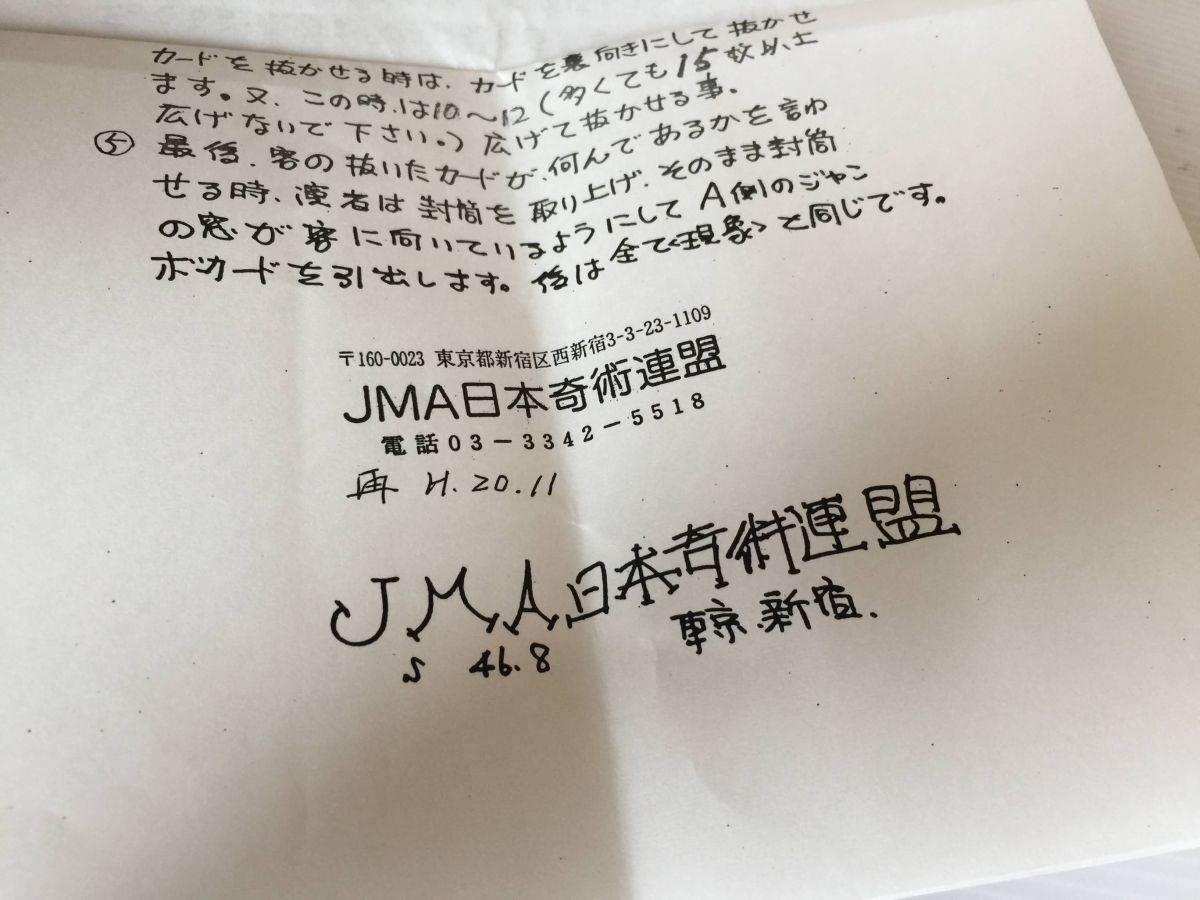 カードを抜かせる時は、カードを裏向きにして抜かせ
ます。又、この時は10〜12(多くても15枚以上
広げないで下さい。)広げて抜かせる事。
⑤最後、客の抜いたカードが、何んであるかを言わ
せる時、演者は封筒を取り上げ、そのまま封筒
の窓が客に向いているようにしてA側のジャン
ボカードを引出します。後は全て<現象>と同じです。
〒160-0023 東京都新宿区西新宿3-3-23-1109
JMA日本奇術連盟
電話03-3342-5518
再 H.20.11
JMA日本奇術連盟
東京.新宿.
S 46.8